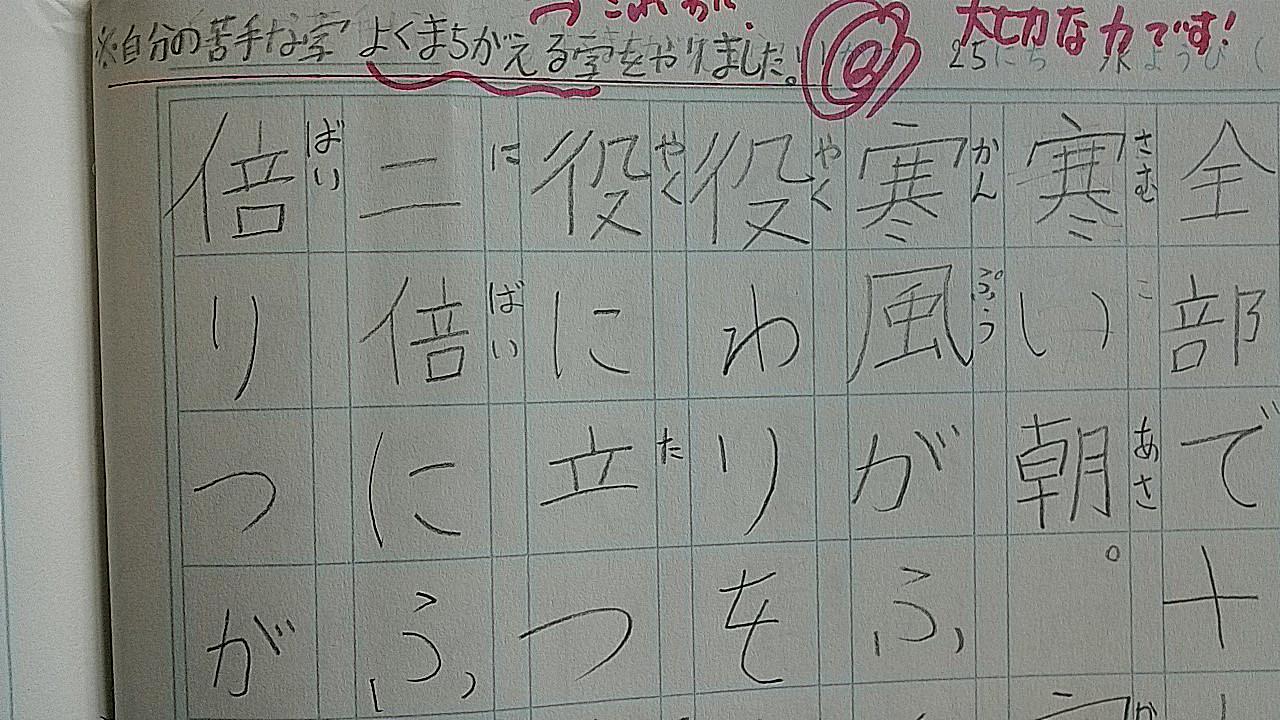 大切な力です!
※自分の苦手な字 よくまちがえる字をやりました。
25にち 水ようび (
全部で十
さむ
寒い朝。
あさ
かんぷう
寒風がふ
やく
役わりを
やく
役に立つ
た
にばい
二倍にふ
ばい
倍りつが